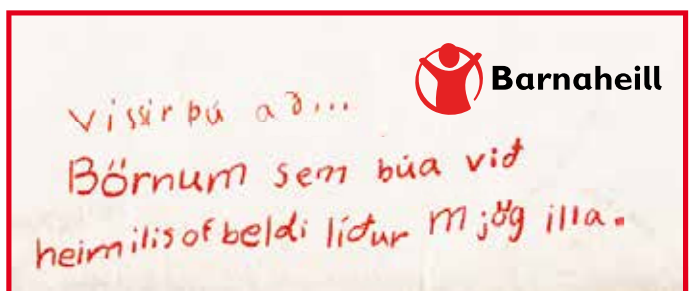 Barnaheill
Vissir þú að...
Börnum sem búa við
heimilisofbeldi líður mjög illa.